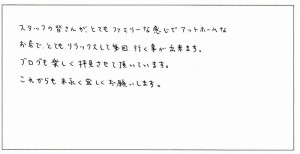 スタッフの皆さんが、とてもファミリーな感じでアットホームな
お店で、とてもリラックスして毎回行く事が出来ます。
ブログも楽しく拝見させて頂いています。
これからも末永く宜しくお願いします。